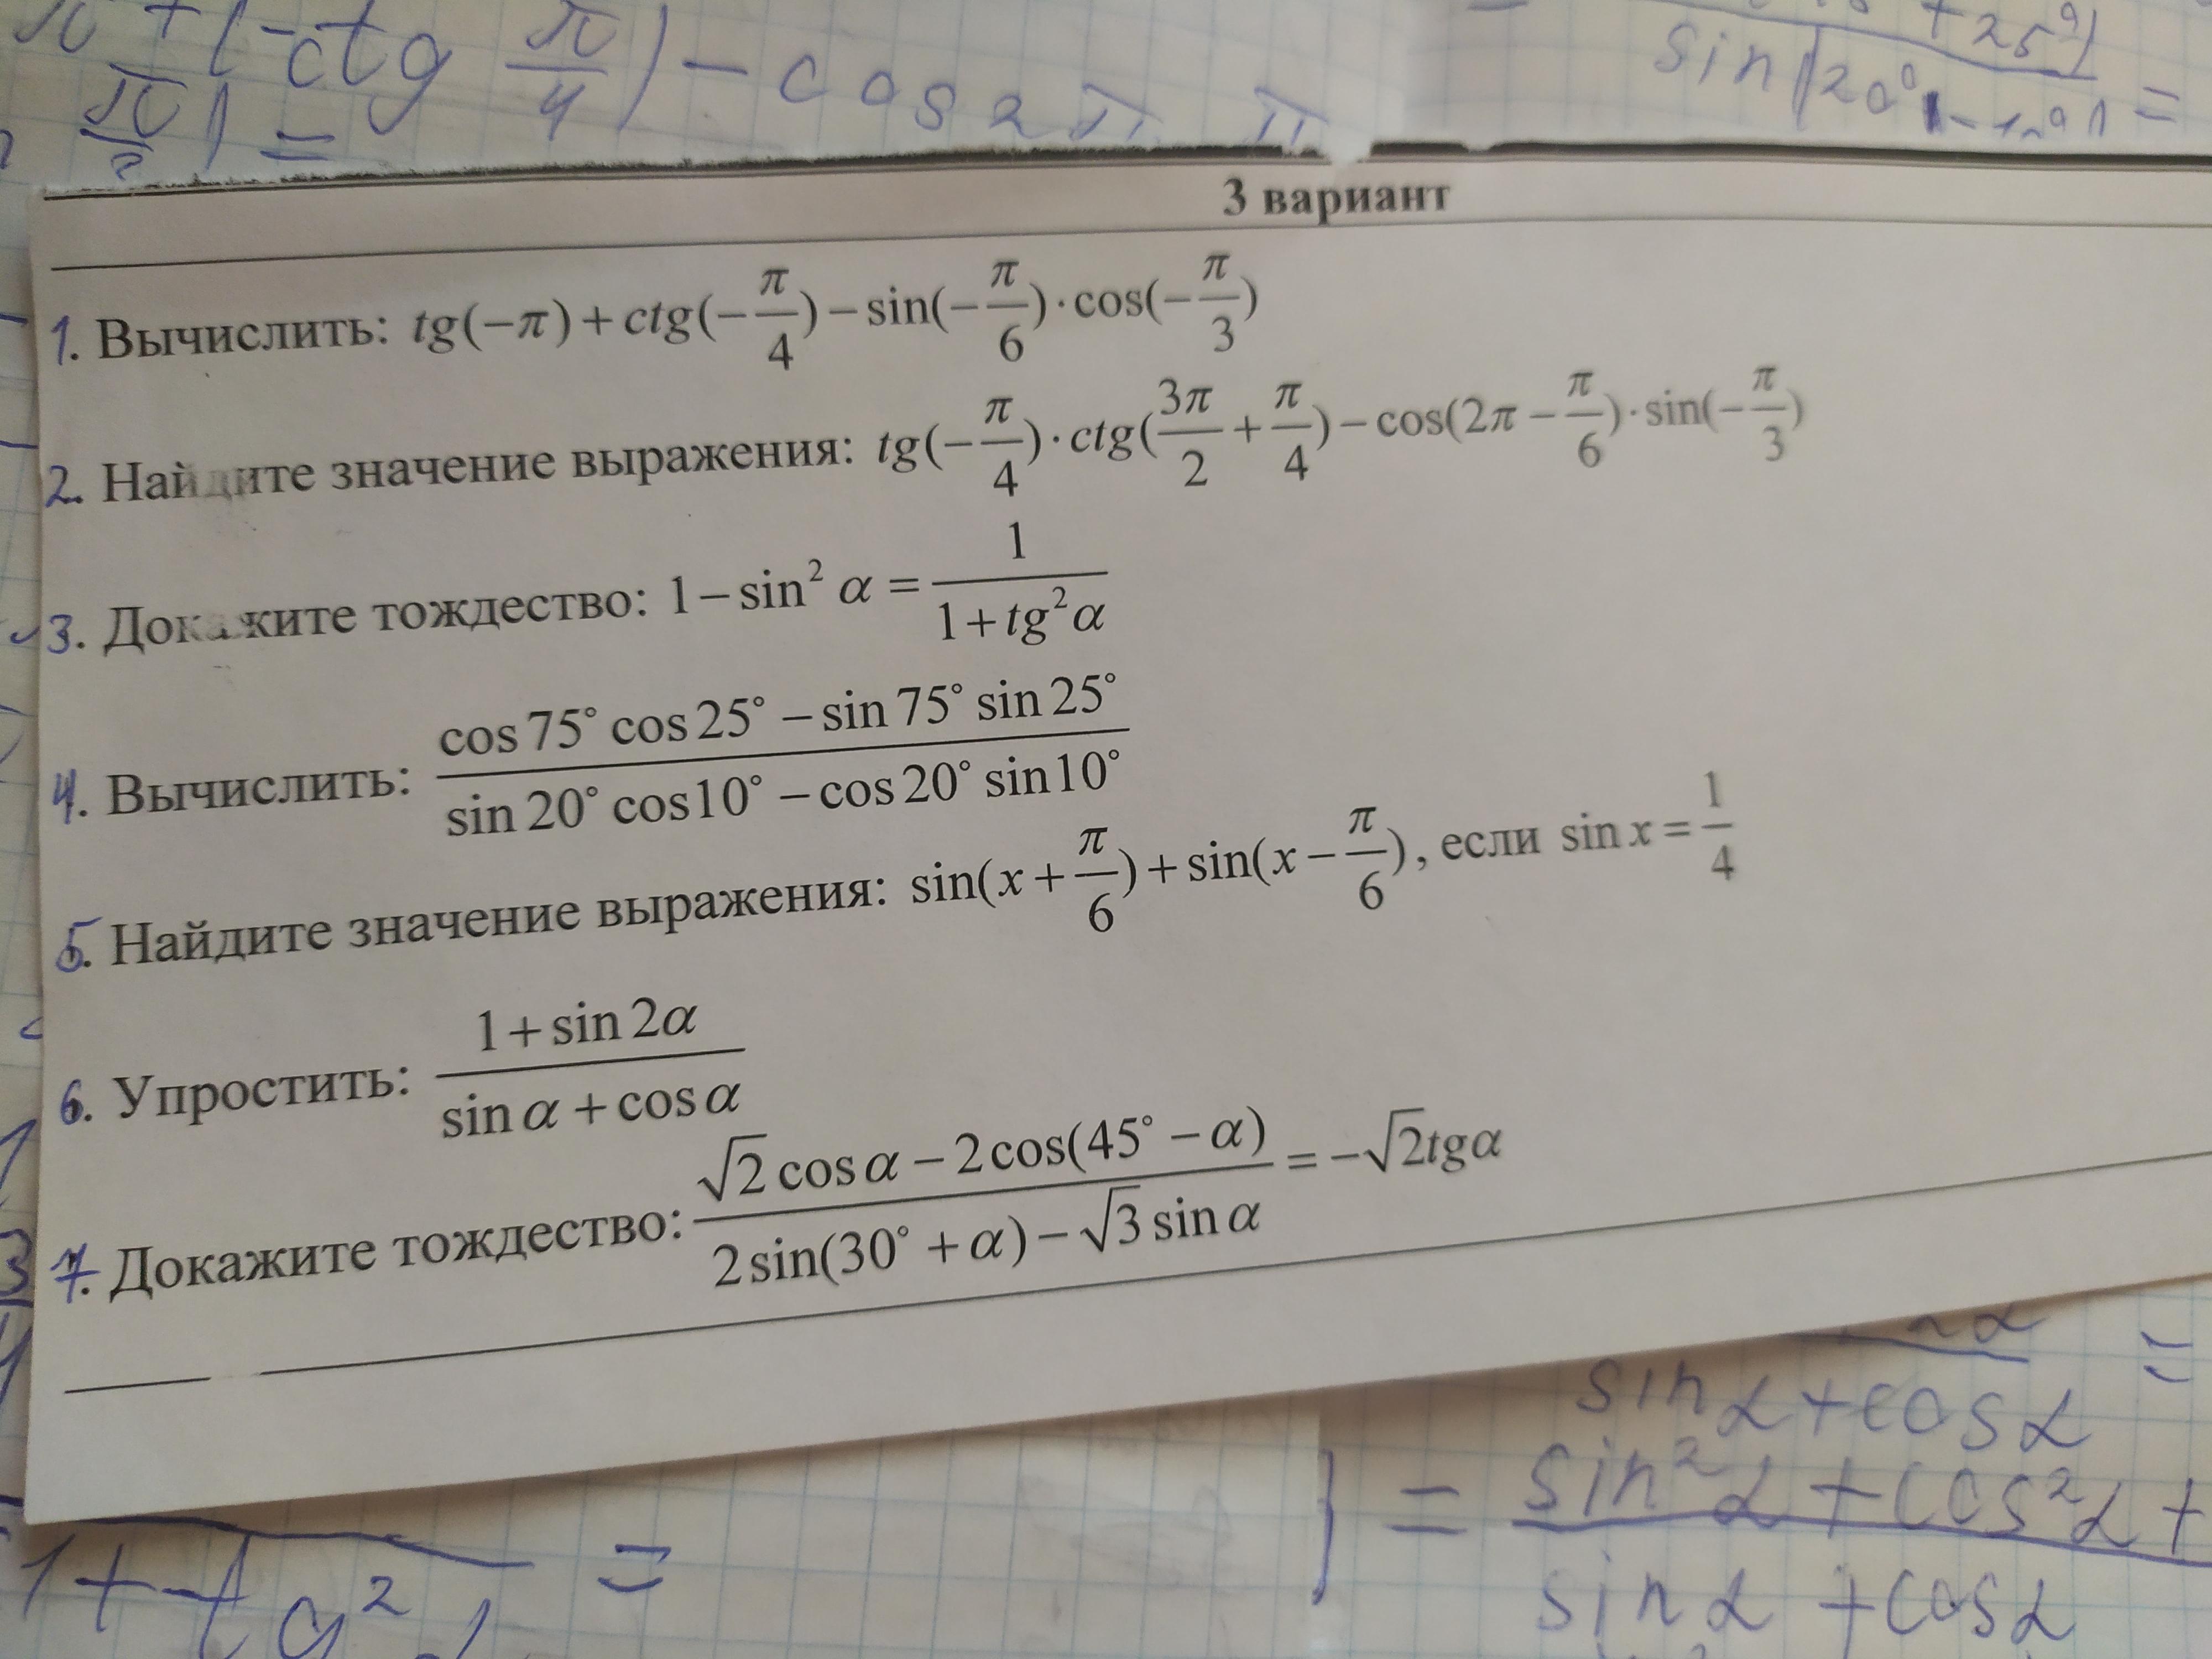 π + (-ctg π/4) - cos 2π
π/2) =
+ 25°)
sin(20° - 10°) =
3 вариант
1. Вычислить: tg(−π) + ctg(−π/4) − sin(−π/6) · cos(−π/3)
2. Найдите значение выражения: tg(−π/4) · ctg(3π/2 + π/4) − cos(2π − π/6) · sin(−π/3)
3. Докажите тождество: 1 − sin² α = 1/(1 + tg²α)
4. Вычислить: (cos 75° cos 25° − sin 75° sin 25°)/(sin 20° cos 10° − cos 20° sin 10°)
5. Найдите значение выражения: sin(x + π/6) + sin(x − π/6), если sin x = 1/4
6. Упростить: (1 + sin 2α)/(sin α + cos α)
7. Докажите тождество: (√2 cos α − 2 cos(45° − α))/(2 sin(30° + α) − √3 sin α) = −√2 tgα
sin α + cos α =
= sin² α + cos² α +
sin α + cos α
1 + tg² =